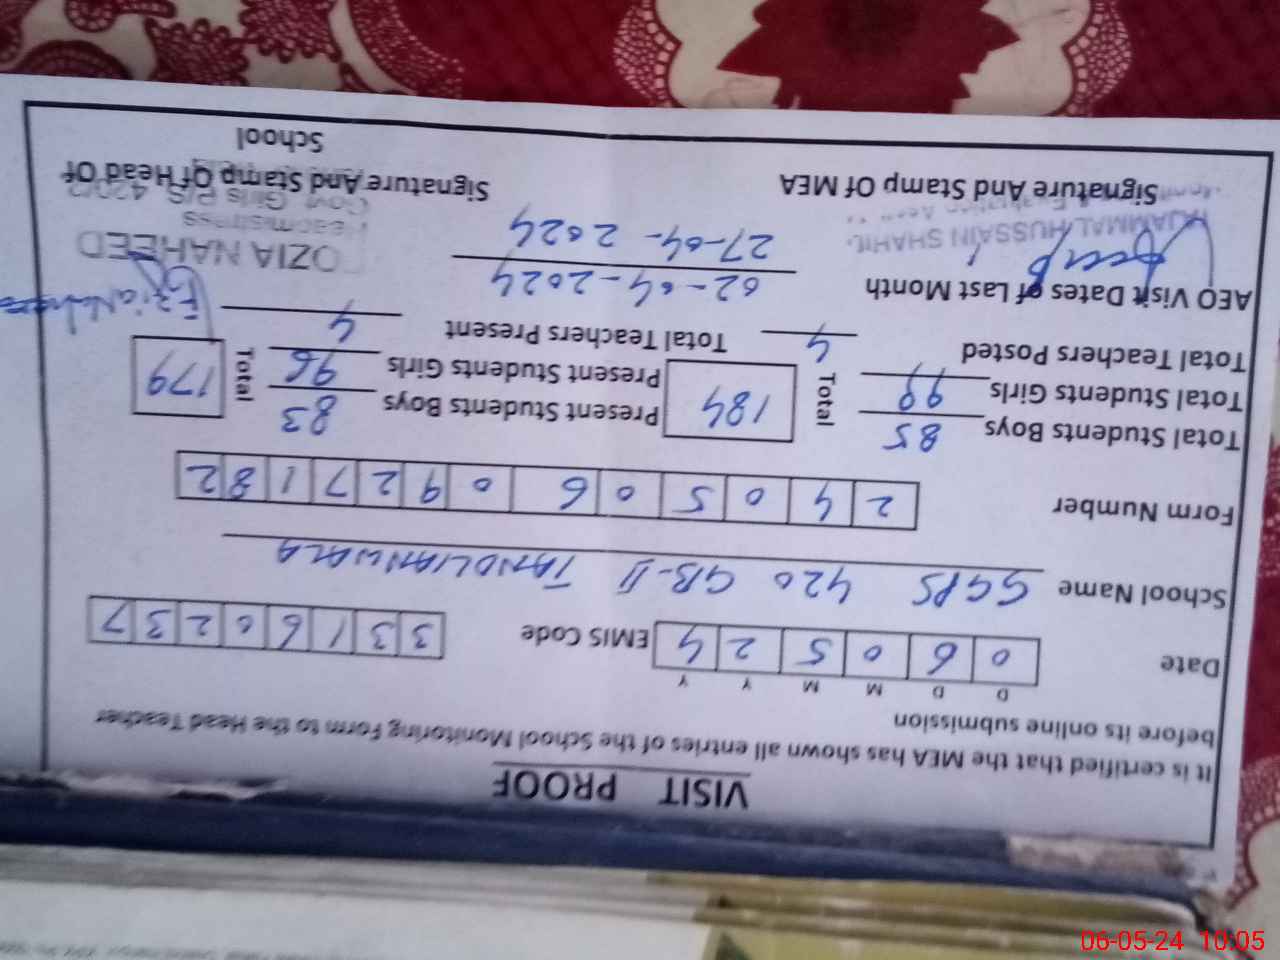 VISIT PROOF
It is certified that the MEA has shown all entries of the School Monitoring Form to the Head Teacher
before its online submission
D D M M Y Y
Date 0 6 0 5 2 4 EMIS Code 3 3 1 6 0 2 3 7
School Name GGPS 420 GB-II TANDLIANWALA
Form Number 2 4 0 5 0 6 0 9 2 7 1 8 2
Total Students Boys 85 Total 184 Present Students Boys 83 Total 179
Total Students Girls 99 Present Students Girls 96
Total Teachers Posted 4 Total Teachers Present 4
AEO Visit Dates of Last Month 02-04-2024
27-04-2024
HUSSAIN SHAHI
OZIA NAHEED
Headmistress
Govt. Girls P/S 420/2
Signature And Stamp Of MEA Signature And Stamp Of Head Of
School
06-05-24 10:05